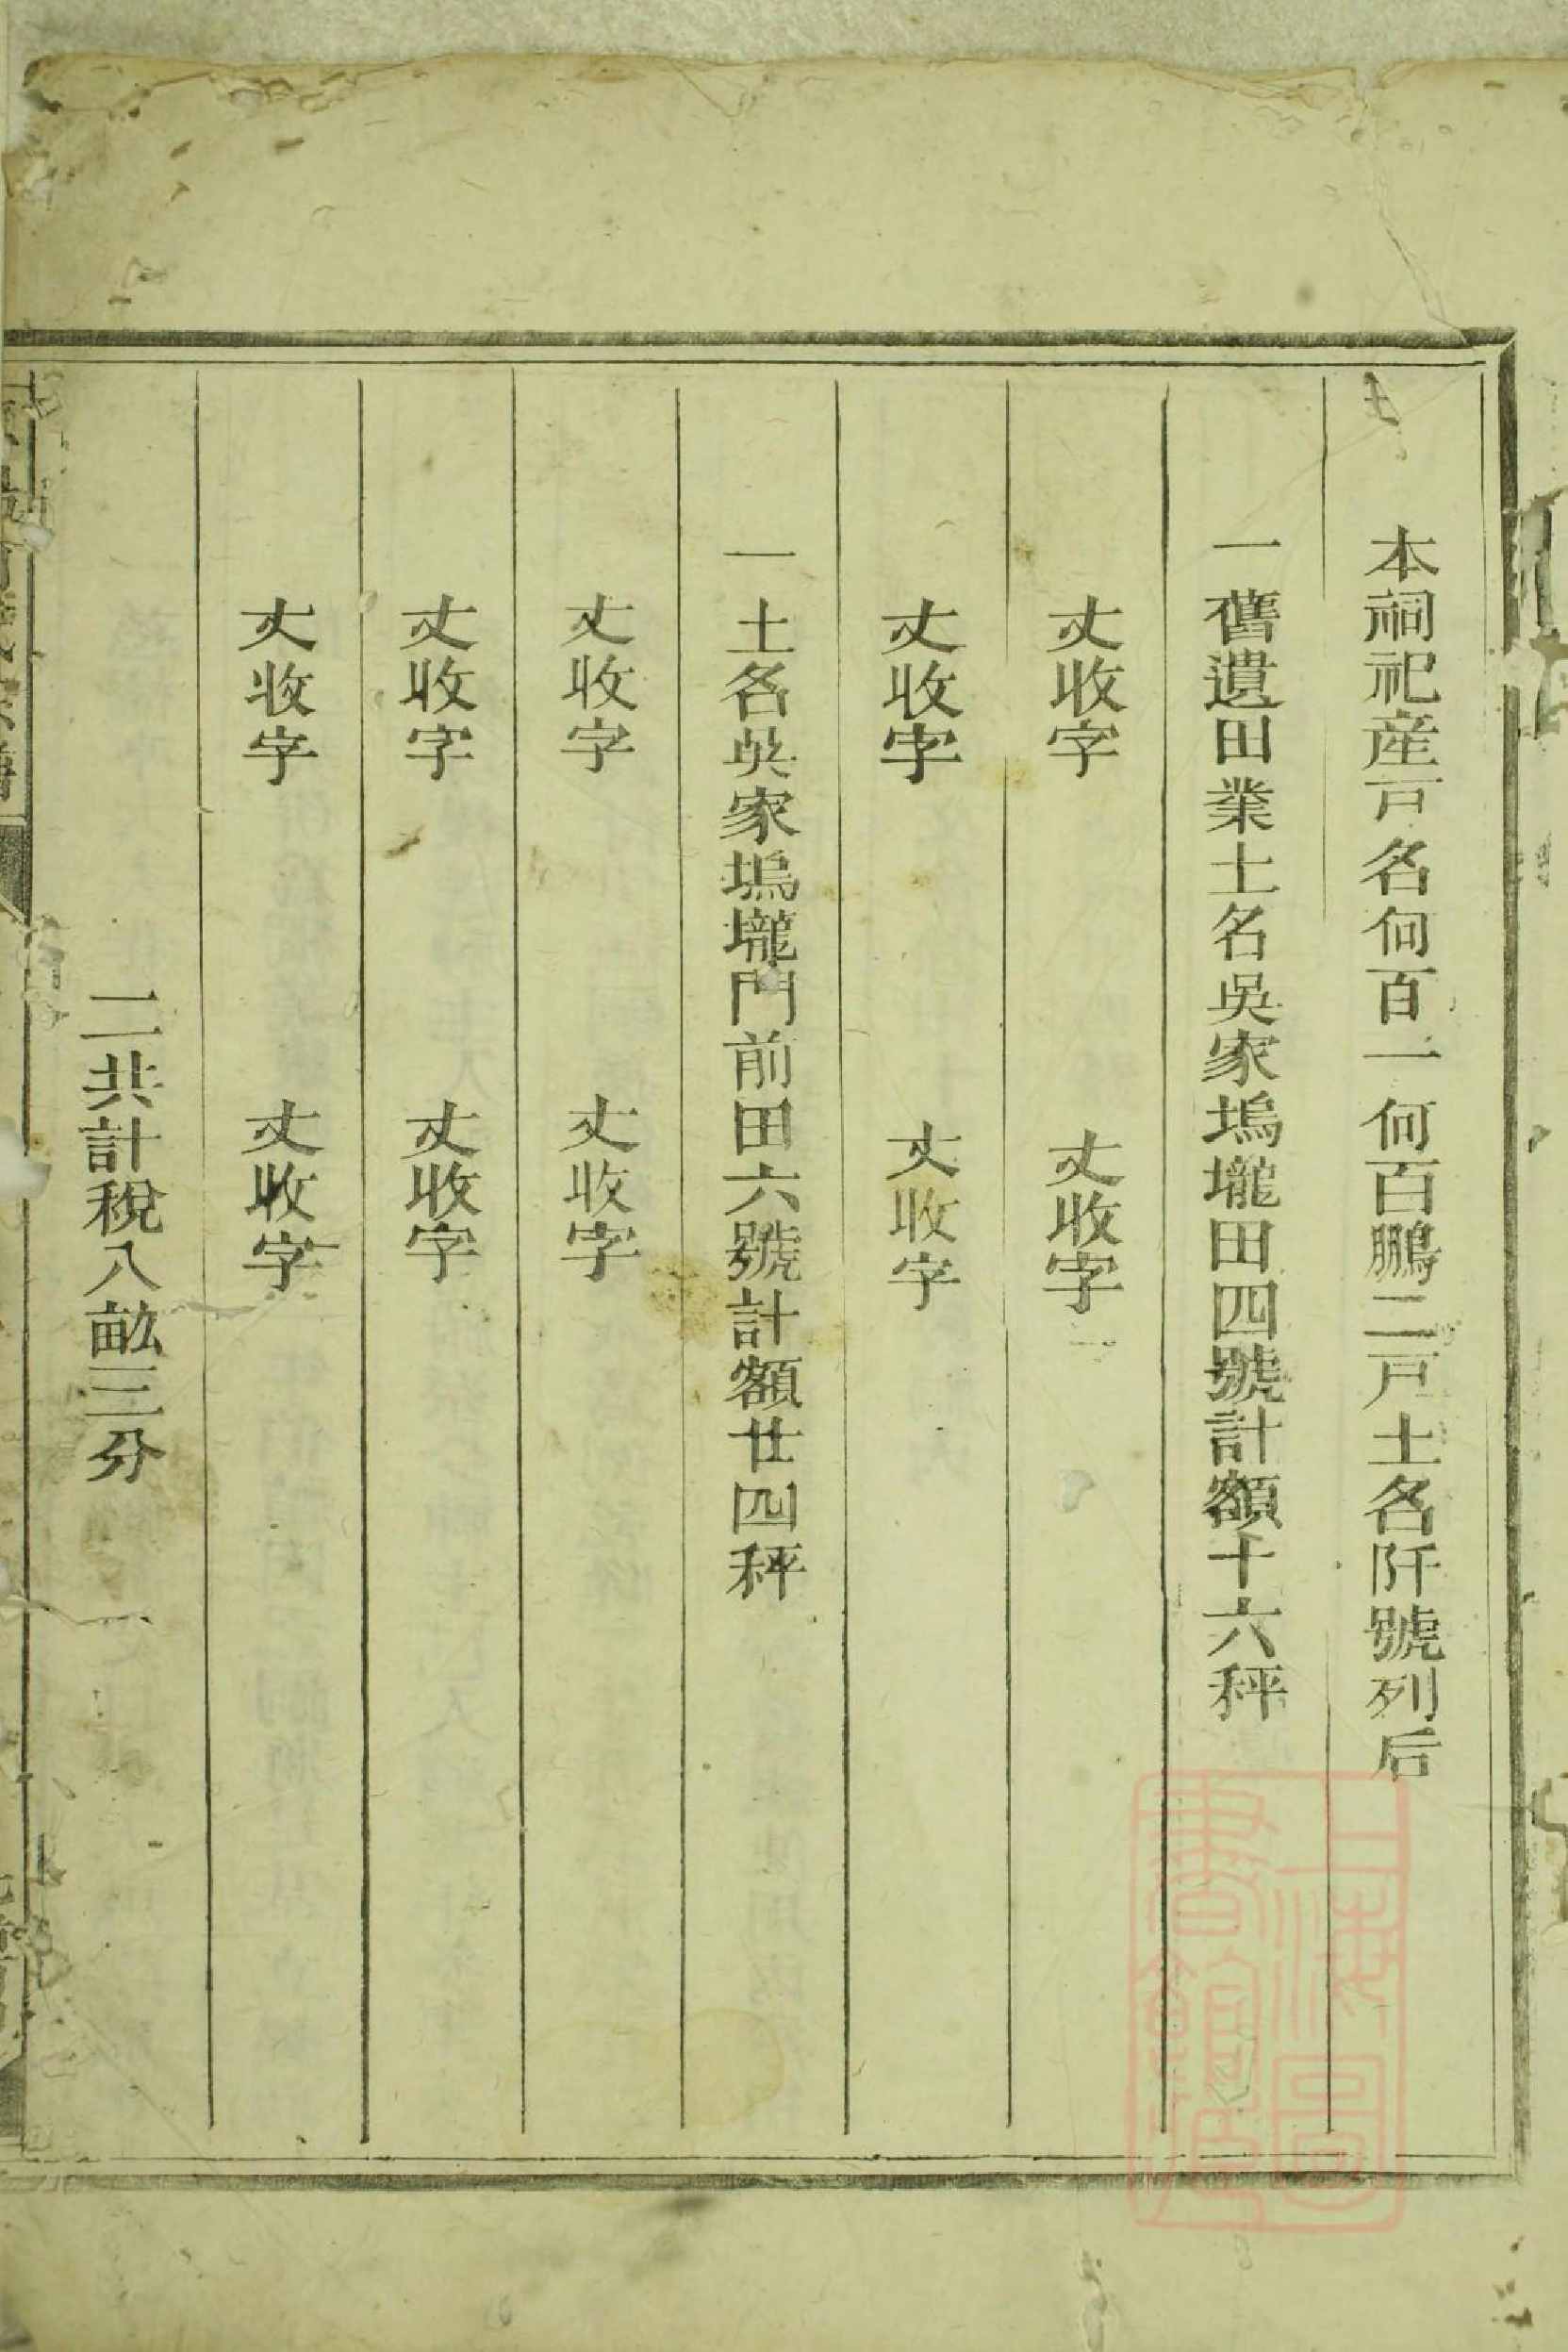 本祠祀産戸名何百一何百鵬二戸土名阡號列后
一舊遺田業土名吳家塢壠田四號計額十六秤
丈收字　丈收字
丈收字　丈收字
一土名吳家塢壠門前田六號計額廿四秤
丈收字　丈收字
丈收字　丈收字
丈收字　丈收字
二共計稅八畝三分
上海圖書館藏